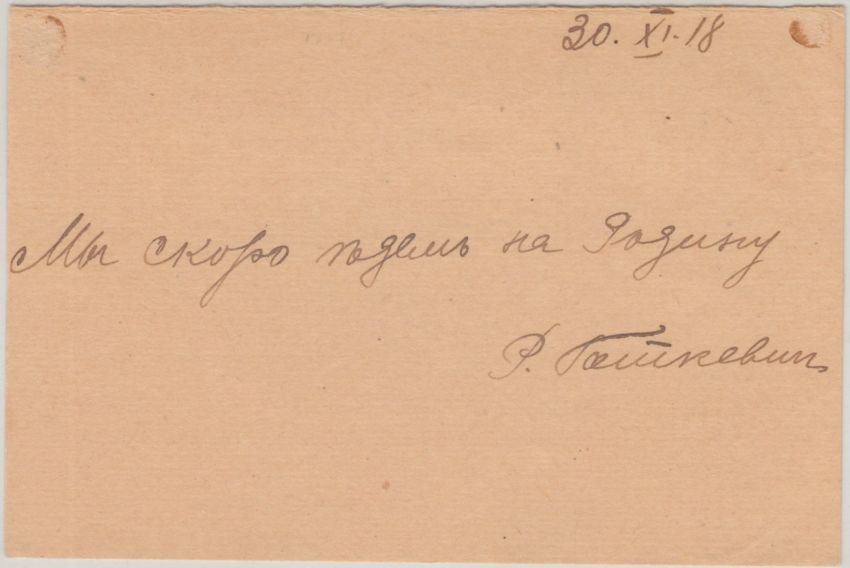 30. XI. 18
Мы скоро ѣдемъ на Родину
Р.